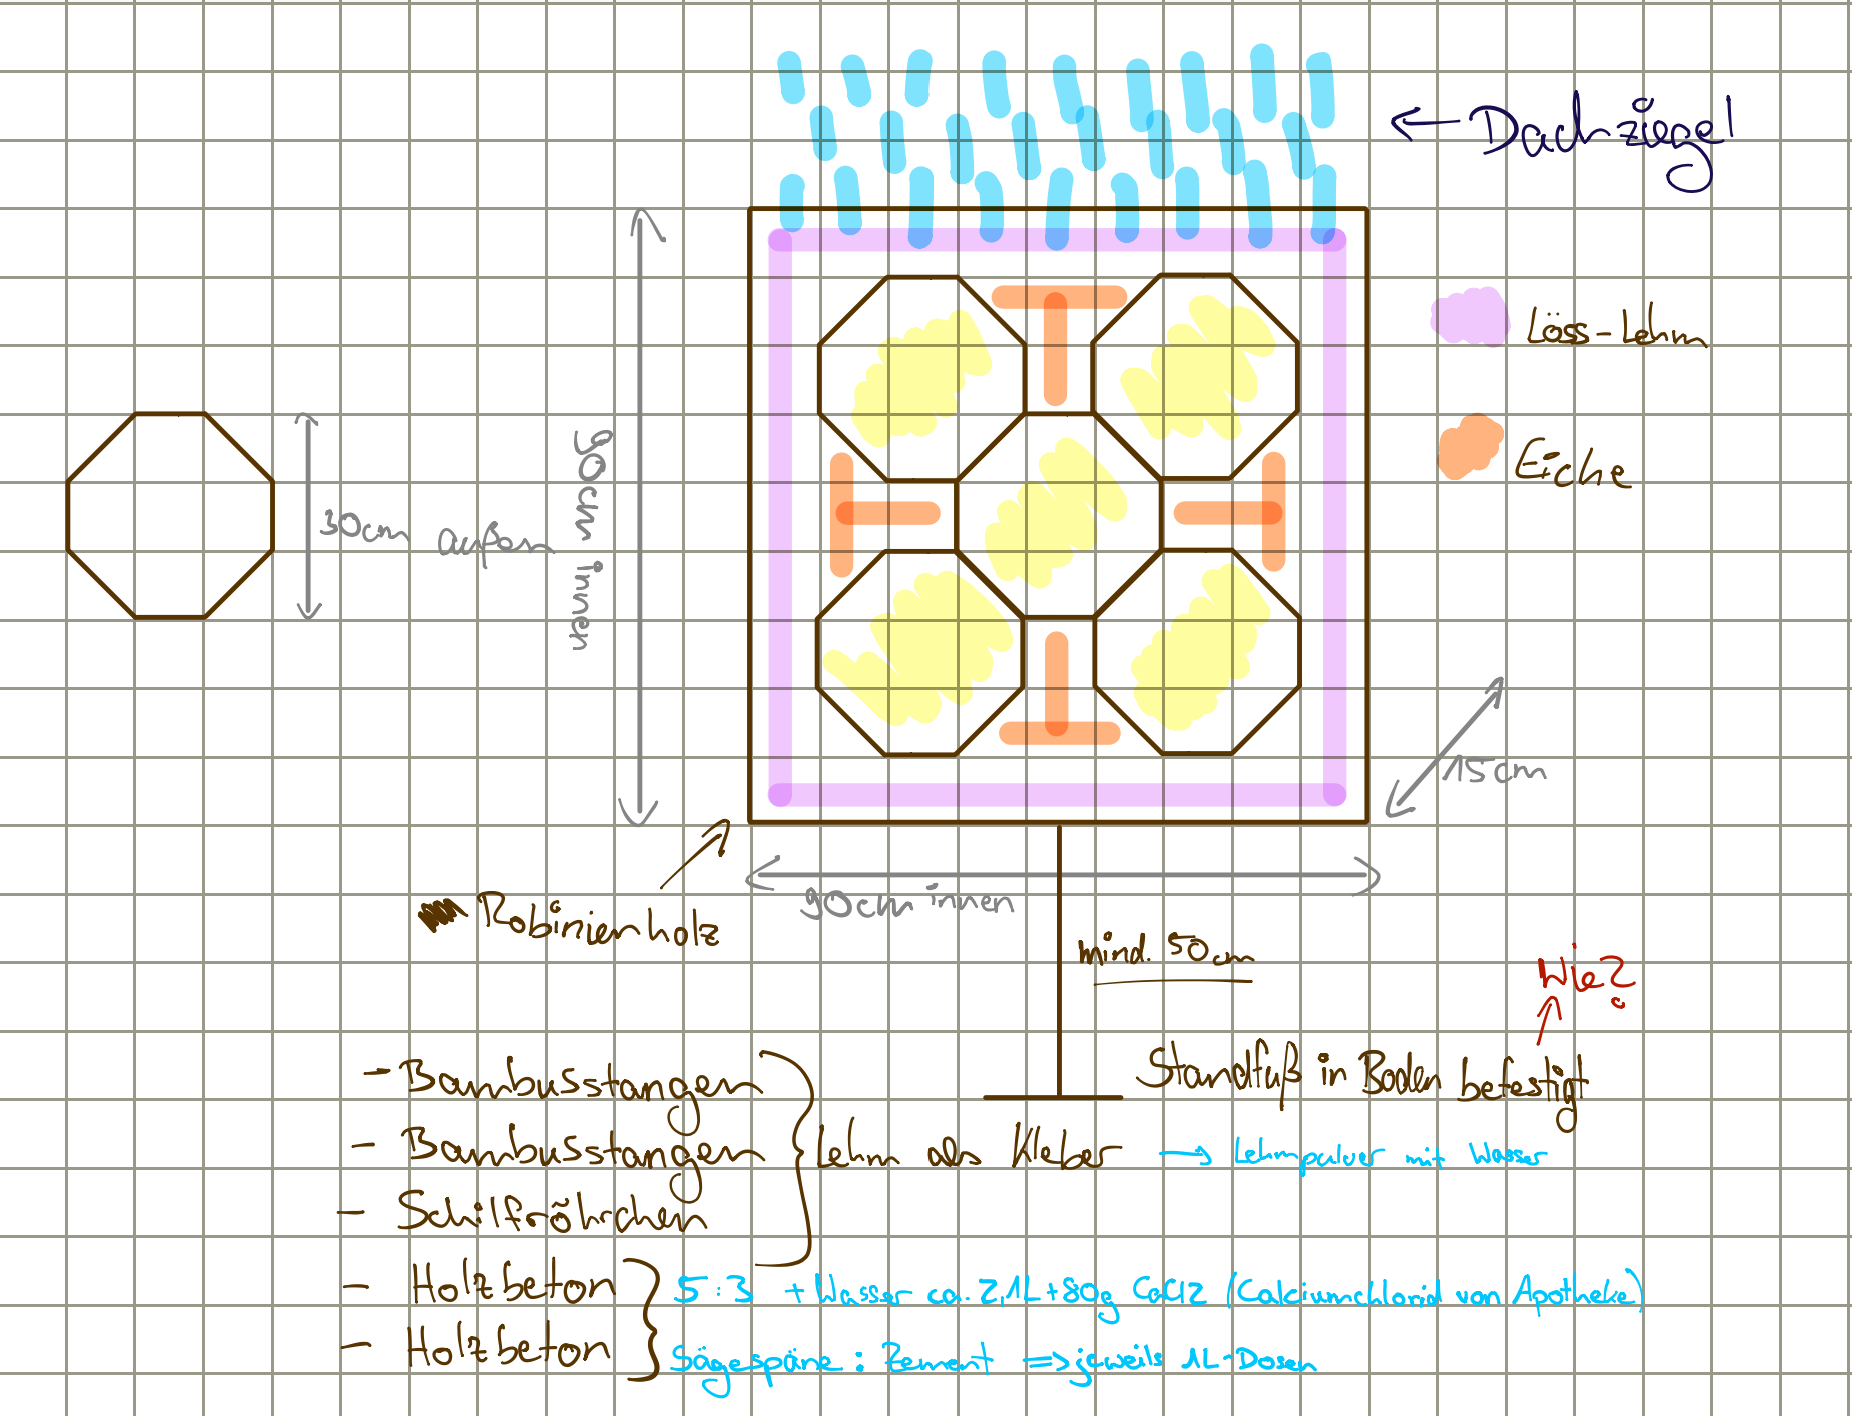 ← Dachziegel
Löss-Lehm
Eiche
30cm außen
90cm innen
15cm
90cm innen
Robinienholz
mind. 50cm
Wie?
Standfuß in Boden befestigt
- Bambusstangen
- Bambusstangen
- Schilfröhrchen
Lehm als Kleber → Lehmpulver mit Wasser
- Holzbeton
- Holzbeton
5:3 + Wasser ca. 2,1L+80g CaCl2 (Calciumchlorid von Apotheke)
Sägespäne : Zement ⇒ jeweils 1L-Dosen